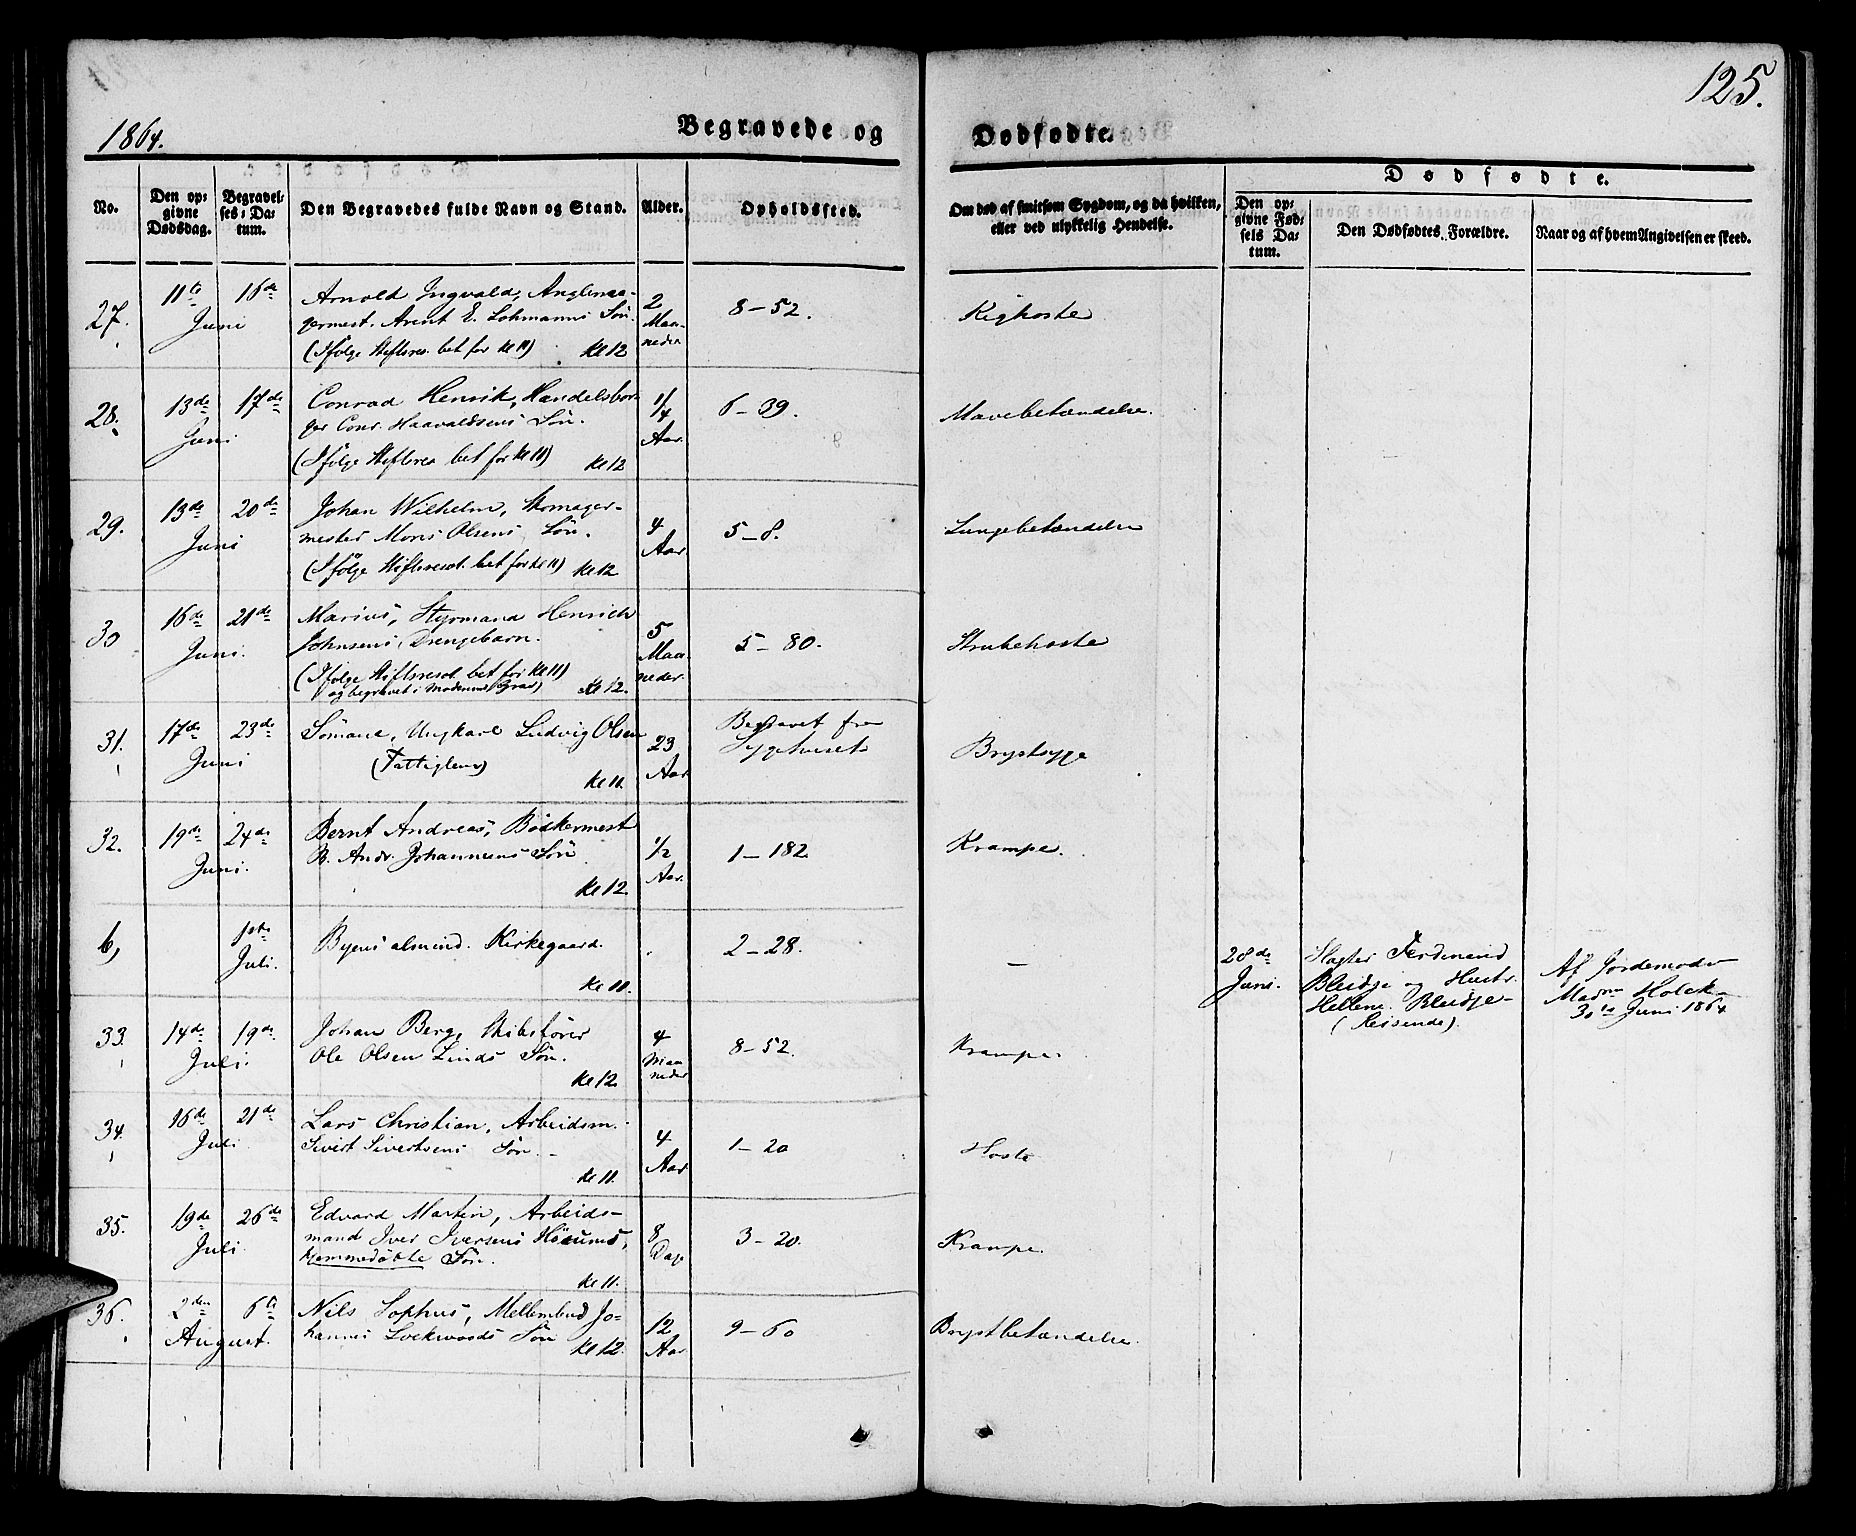 125.
1864.
Begravede og Dødfødte.
No.
Den opgivne Dødsdag.
Begravelses-Datum.
Den Begravedes fulde Navn og Stand.
Alder.
Opholdssted.
Om død af smitsom Sygdom, og da hvilken, eller ved ulykkelig Hendelse.
Dødfødte.
Den opgivne Fødsels Datum.
Den Dødfødtes Forældre.
Naar og af hvem Angivelsen er skeed.
27. 11te 16de Juni
Arnold Ingvald,
germest. Arent E. Lohmanns Søn.
(Ifølge Stiftsres. bet for Kl 11) Kl 12
2 Maaneder
8-52.
Kighoste
28. 13de 17de Juni
Conrad Henrik, Handelsbor-
ger Conr. Haavaldsens Søn.
(Ifølge Stiftsres bet for Kl 11) Kl 12
1/4 Aar.
6-39.
Mavebetændelse.
29. 13de 20de Juni
Johan Wilhelm, Skomager-
mester Mons Olsens Søn.
(Ifølge Stiftsresol. bet for Kl 11) Kl 12
4 Aar.
5-8.
Lungebetændelse
30 16de 21de Juni.
Marius, Styrmand Henrich
Johnsens Drengebarn.
(Ifølge Stiftsresol bet for Kl 11)
og begravet i Moderens Grav) Kl 12.
5 Maaneder.
5-80.
Strubehoste
31. 17de 23de Juni
Sömand, Ungkarl Ludvig Olsen
(Fattiglem) Kl 11.
23 Aar.
Begravet fra
Sygehuset
Brystsyge
32. 19de 24de Juni.
Bernt Andreas, Bødkermest
B. Andr. Johannesens Søn
Kl 12.
1/2 Aar.
1-182.
Krampe.
6, 1ste Juli.
Byens almind. Kirkegaard.
Kl 11.
2-28.
-
28de Juni.
Slagter Ferdinand
Bleidje og Hustr.
Hellene Bleidje-
(Reisende).
Af Jordemoder
Madm Holck
30te Juni 1864
33. 14de 19de Juli.
Johan Berg, Skibsfører
Ole Olsen Linds Søn.
Kl 12.
4 Maaneder
8-52.
Krampe.
34. 16de 21de Juli
Lars Christian, Arbeidsm.
Sivert Sivertsens Søn.
Kl 11.
4 Aar.
1-20
Hoste
35. 19de 26de Juli.
Edvard Martin, Arbeids-
mand Iver Iversens
hjemmedøbte Søn.
Kl 11.
8 Dage
3-20.
Krampe.
36. 2den 6te August.
Nils Sophus, Jo-
hannes Lockwoods Søn
Kl 12.
12 Aar.
9-60
Brystbetændelse.